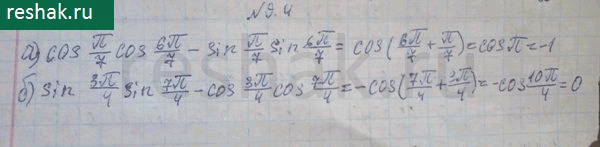 №9.4
а) cos π/7 cos 6π/7 - sin π/7 sin 6π/7 = cos(6π/7 + π/7) = cos π = -1
б) sin 3π/4 sin 7π/4 - cos 3π/4 cos 7π/4 = -cos(7π/4 + 3π/4) = -cos 10π/4 = 0
reshak.ru